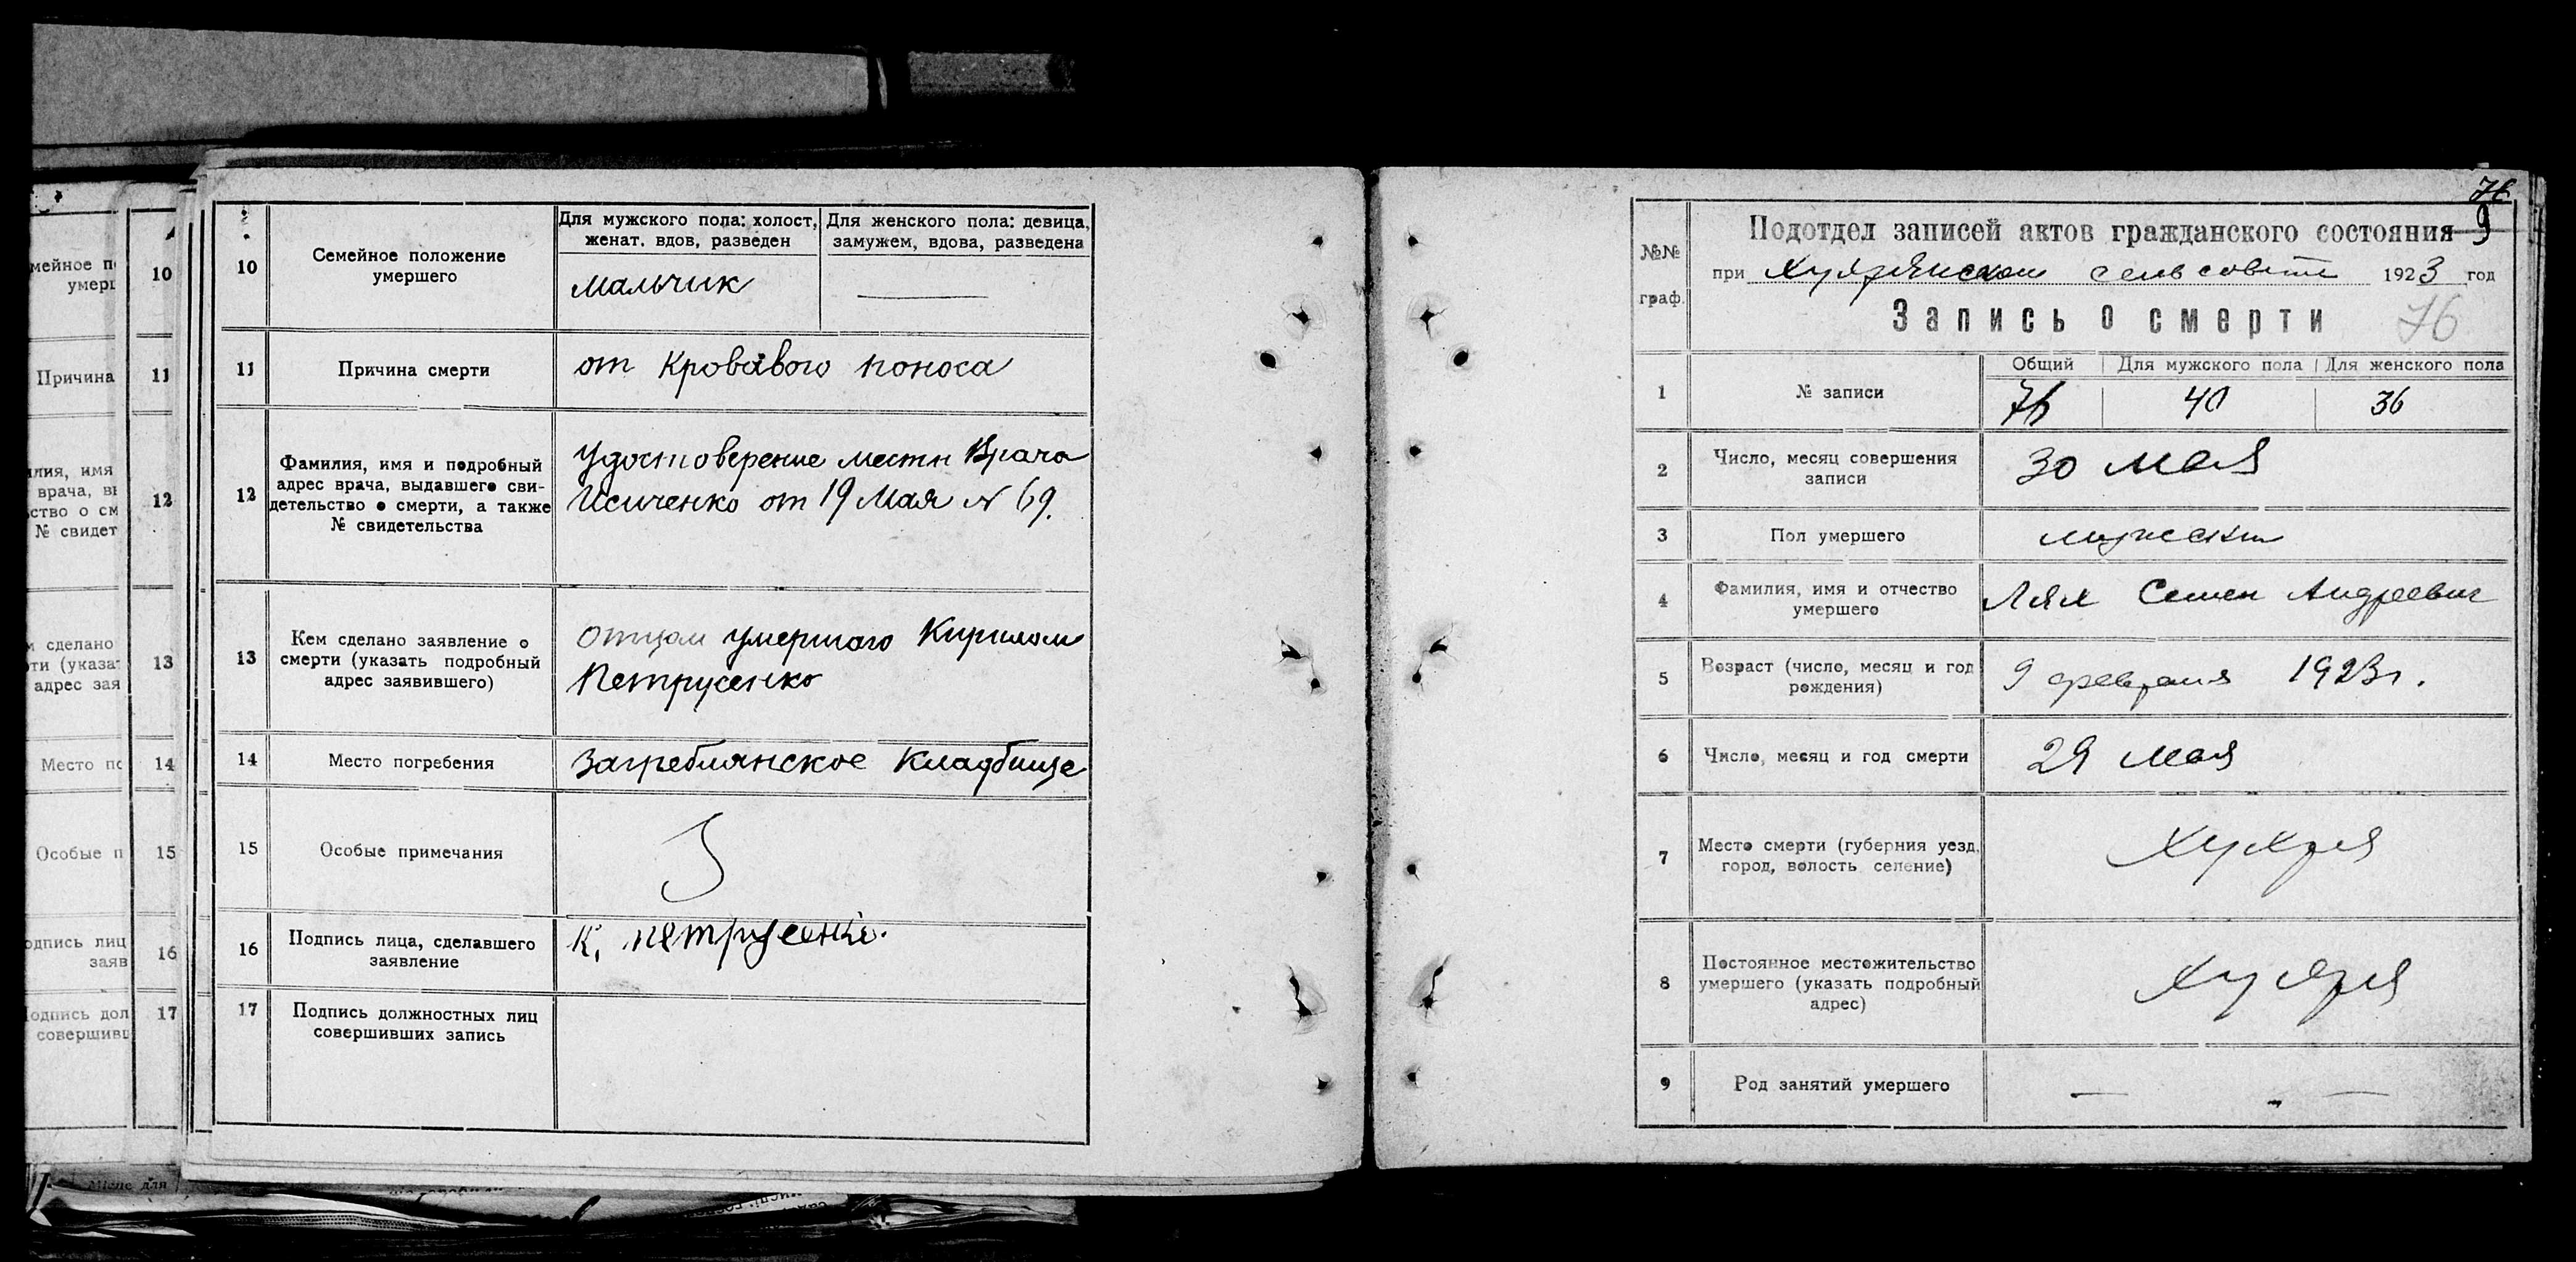 мейное п
умерш
10
Причина
11
илия, имя
врача, вы
ство о см
№ свидет
12
м сделано
ти (указат
адрес зая
13
Место по
14
Особые п
15
одпись лиц
заяв
16
одпись дол
совершивш
17
10
Семейное положение
умершего
Для мужского пола: холост,
женат, вдов, разведен
Для женского пола: девица,
замужем, вдова, разведена
мальчик
11
Причина смерти
от Кровавого поноса
12
Фамилия, имя и подробный
адрес врача, выдавшего сви-
детельство о смерти, а также
№ свидетельства
Удостоверение местн Врача
Исиченко от 19 Мая № 69.
13
Кем сделано заявление о
смерти (указать подробный
адрес заявившего)
отцом умершаго Кирилом
Петрусенко
14
Место погребения
Загреблянское Кладбище
15
Особые примечания
16
Подпись лица, сделавшего
заявление
К. петрусенко.
17
Подпись должностных лиц
совершивших запись
76
9
№№
граф.
Подотдел записей актов гражданского состояния
при Хухрянском сельсовете 1923 год
Запись о смерти
76
1
№ записи
Общий Для мужского пола Для женского пола
76 40 36
2
Число, месяц совершения
записи
30 мая
3
Пол умершего
мужской
4
Фамилия, имя и отчество
умершего
Лях Семен Андреевич
5
Возраст (число, месяц и год
рождения)
9 февраля 1923 г.
6
Число, месяц и год смерти
29 мая
7
Место смерти (губерния уезд,
город, волость селение)
Хухря
8
Постоянное местожительство
умершего (указать подробный
адрес)
Хухря
9
Род занятий умершего